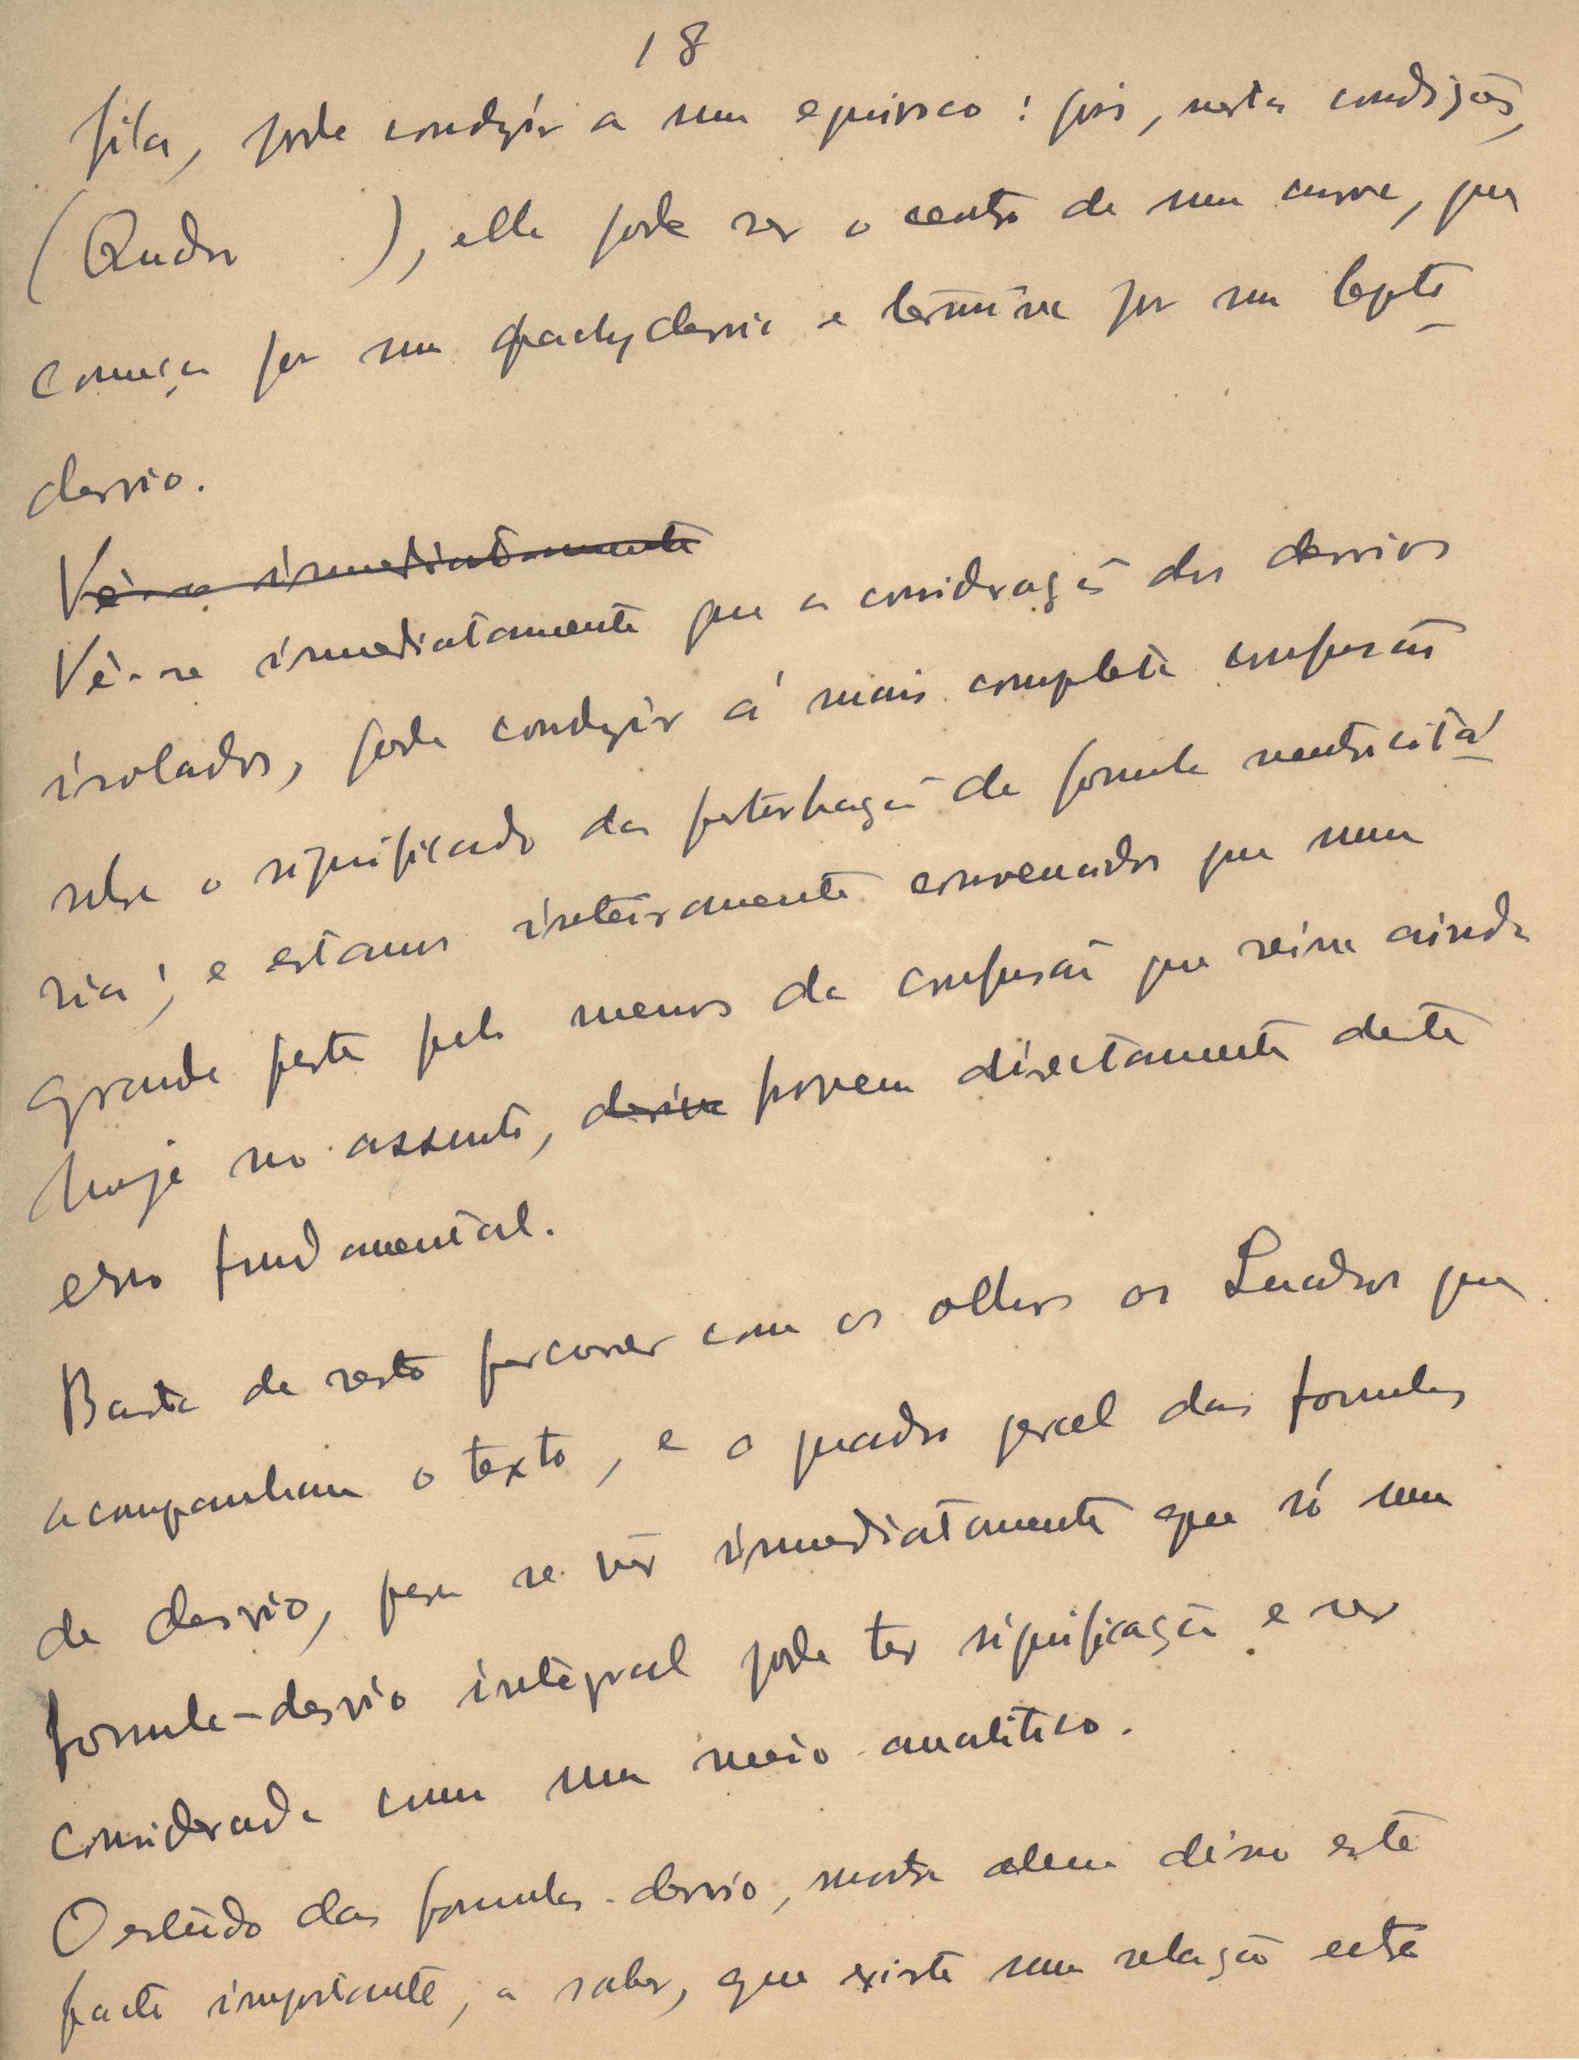 18
fita, pode conduzir a um equivoco: pois, nesta condição,
(Quadro ), elle pode ser o centro de uma curva, que
começa por um pachydesvio e termina por um lepto-
desvio.
Vê-se immediatamente
Vê-se immediatamente que a consideração dos desvios
isolados, pode conduzir á mais completa confusão
sobre o significado da perturbação da formula neutrocitá-
ria; e estamos inteiramente convencidos que uma
grande parte pelo menos da confusão que reina ainda
hoje no assunto, deriva provem directamente deste
erro fundamental.
Basta de resto percorrer com os olhos os Quadros que
acompanham o texto, e o quadro geral das formulas
de desvio, para se vêr immediatamente que só uma
formula-desvio integral pode ter significação e ser
considerada como um meio analitico.
O estudo das formulas-desvio, mostra alem disso este
facto importante, a saber, que existe uma relação entre